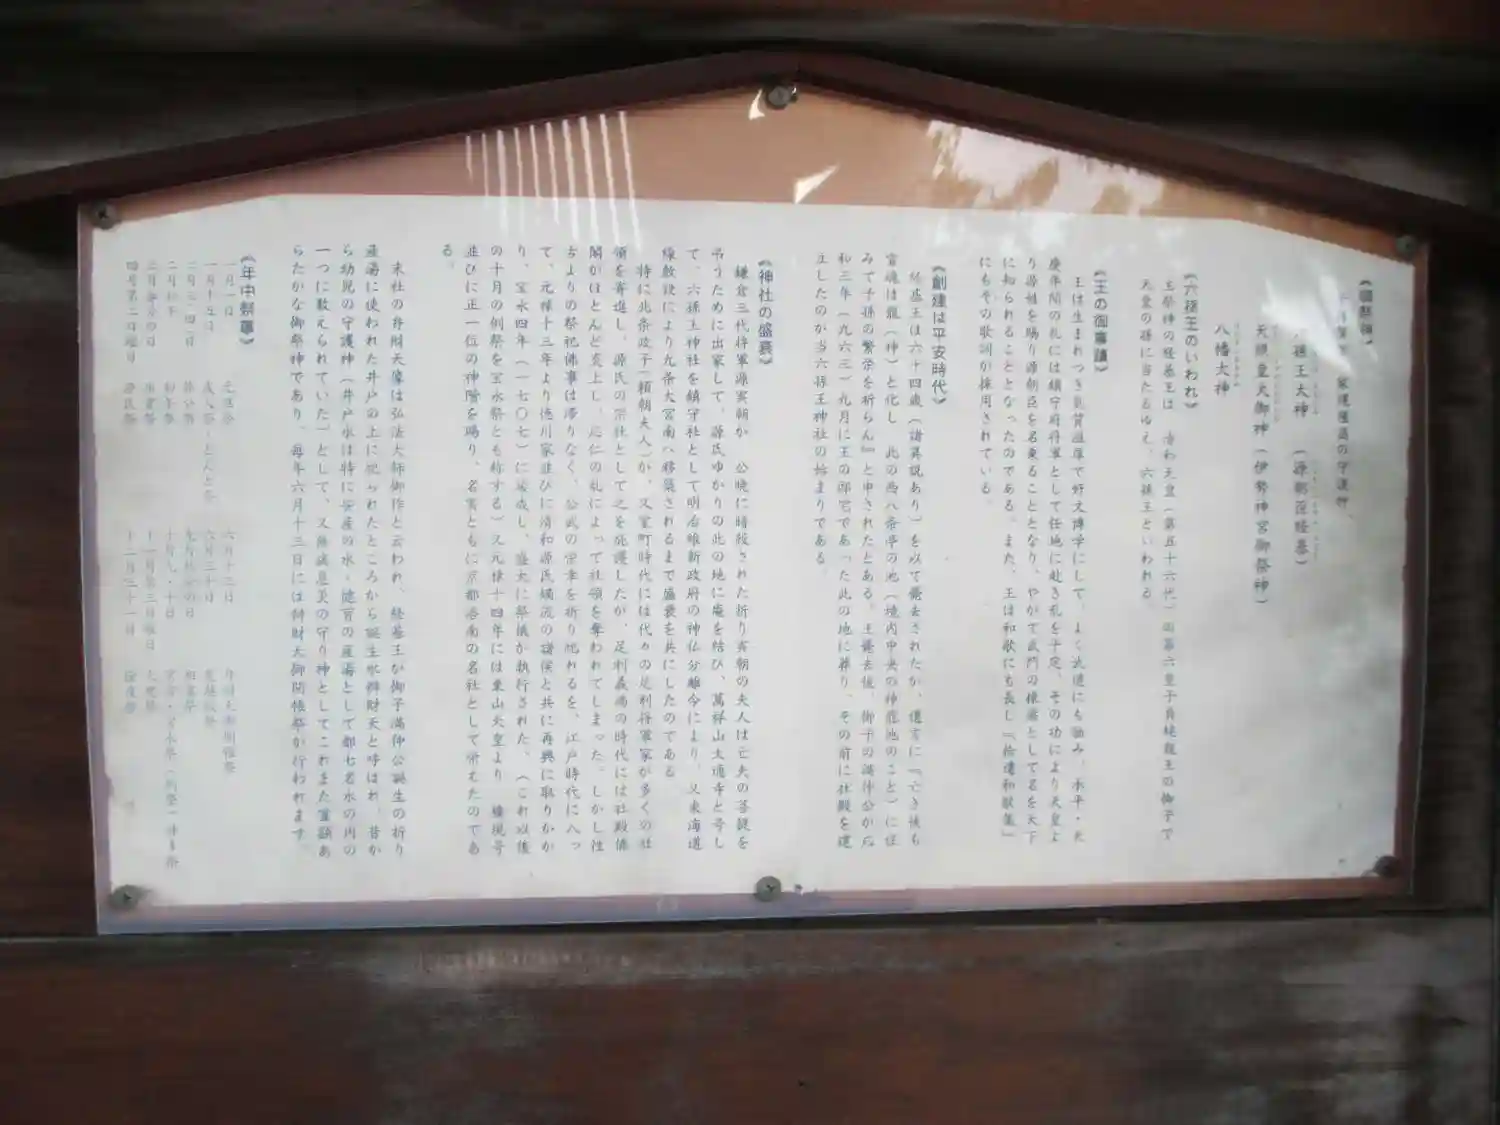 《御祭神》
家運隆昌の守護神、
六孫王大神 (源朝臣経基)
天照皇大御神 (伊勢神宮御祭神)
八幡大神
《六孫王のいわれ》
主祭神の経基王は 清和天皇(第五十六代)の第六皇子貞純親王の御子で
天皇の孫に当たるゆえ、六孫王といわれる。
《王の御事蹟》
王は生まれつき気質温厚で好文博学にして、よく武道にも励み、承平・天
慶年間の乱には鎮守府将軍として任地に赴き乱を平定、その功により天皇よ
り源姓を賜り源朝臣を名乗ることとなり、やがて武門の棟梁として名を天下
に知られることとなったのである。また、王は和歌にも長じ『拾遺和歌集』
にもその歌詞が採用されている。
《創建は平安時代》
経基王は六十四歳(諸異説あり)を以て薨去されたが、遺言に『亡き後も
霊魂は龍(神)と化し 此の西八条亭の池(境内中央の神龍池のこと)に住
みて子孫の繁栄を祈らん』と申されたとある。王薨去後、御子の満仲公が応
和三年(九六三)九月に王の邸宅であった此の地に葬り、その前に社殿を建
立したのが当六孫王神社の始まりである。
《神社の盛衰》
鎌倉三代将軍源実朝が 公暁に暗殺された折り実朝の夫人は亡夫の菩提を
弔うために出家して、源氏ゆかりの此の地に庵を結び、萬祥山大通寺と号し
て、六孫王神社を鎮守社として明治維新政府の神仏分離令により、又東海道
線敷設により九条大宮南へ移築されるまで盛衰を共にしたのである
特に北条政子(頼朝夫人)が、又室町時代には代々の足利将軍家が多くの社
領を寄進し、源氏の宗社として之を庇護したが、足利義満の時代には社殿備
閣がほとんど炎上し、応仁の乱によって社領を奪われてしまった。しかし往
古よりの祭祀佛事は滞りなく、公武の栄幸を祈り祀れるを、江戸時代に入っ
て、元禄十三年より徳川家並びに清和源氏嫡流の諸侯と共に再興に取りかか
り、宝永四年(一七〇七)に落成し、盛大に祭儀が執行された。(これ以後
の十月の例祭を宝永祭とも称する)又元禄十四年には東山天皇より 権現号
並びに正一位の神階を賜り、名実ともに京都洛南の名社として栄えたのであ
る。
末社の弁財天像は弘法大師御作と云われ、経基王が御子満仲公誕生の折り
産湯に使われた井戸の上に祀られたところから誕生水辨財天と呼ばれ、昔か
ら幼児の守護神(井戸水は特に安産の水・徳育の産湯として都七名水の内の
一つに数えられていた)として、又無病息災の守り神としてこれまた霊顕あ
らたかな御祭神であり、毎年六月十三日には辨財天御開帳祭が行われます。
《年中祭事》
一月一日 元旦祭 六月十三日 弁財天御開帳祭
一月十五日 成人祭・とんど祭 六月三十日 夏越祓祭
二月三・四日 節分祭
二月初午 初午祭 十月九・十日
十一月第三日曜日 火焚祭
四月第二日曜日 源氏祭 十二月三十一日 除夜祭